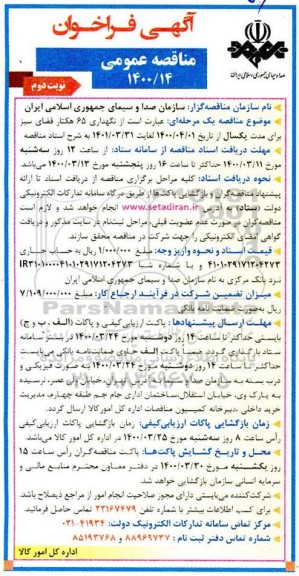 آگهی فراخوان
مناقصه عمومی
۱۴۰۰/۱۴
نوبت دوم
صدا و سیمای جمهوری اسلامی ایران
نام سازمان مناقصه‌گزار: سازمان صدا و سیمای جمهوری اسلامی ایران
موضوع مناقصه یک مرحله‌ای: عبارت است از نگهداری ۶۵ هکتار فضای سبز
برای مدت یکسال از تاریخ ۱۴۰۰/۰۴/۰۱ لغایت ۱۴۰۱/۰۳/۳۱ به شرح اسناد مناقصه
مهلت دریافت اسناد مناقصه از سامانه ستاد: از ساعت ۱۲ روز سه‌شنبه
مورخ ۱۴۰۰/۰۳/۱۱ حداکثر تا ساعت ۱۶ روز پنجشنبه مورخ ۱۴۰۰/۰۳/۱۳ می‌باشد
نحوه دریافت اسناد: کلیه مراحل برگزاری مناقصه از دریافت اسناد تا ارائه
پیشنهاد مناقصه‌گران و بازگشایی پاکت‌ها از طریق درگاه سامانه تدارکات الکترونیکی
دولت (ستاد) به آدرس www.setadiran.ir انجام خواهد شد و لازم است
مناقصه‌گران در صورت عدم عضویت قبلی، مراحل ثبت‌نام در سایت مذکور و دریافت
گواهی امضای الکترونیکی را جهت شرکت در مناقصه محقق سازند.
قیمت اسناد و نحوه واریز وجه: مبلغ ۱/۰۰۰/۰۰۰ ریال به حساب جاری
نزد بانک مرکزی به نام سازمان صدا و سیمای جمهوری اسلامی ایران
میزان تضمین شرکت در فرآیند ارجاع کار: مبلغ ۷/۱۰۹/۰۰۰/۰۰۰
ریال به‌صورت ضمانت نامه بانکی
مهلت ارسال پیشنهادها: پاکت ارزیابی کیفی و پاکات (الف، ب و ج)
بایستی حداکثر تا ساعت ۱۴ روز دوشنبه مورخ ۱۴۰۰/۰۳/۲۴ در بستر سامانه
ستاد بارگذاری گردد. ضمناً پاکت الف حاوی ضمانت‌نامه بانکی می‌بایست
حداکثر تا ساعت ۱۴ روز دوشنبه مورخ ۱۴۰۰/۰۳/۲۴ به صورت فیزیکی و
درب بسته به این سازمان به آدرس: تهران، خیابان ولی عصر، نرسیده
به پارک وی، خیابان استقلال، ساختمان اداری جام جم طبقه چهارم، مدیریت
خرید داخلی، دبیرخانه کمیسیون مناقصات اداره کل امور کالا ارسال گردد.
زمان بازگشایی پاکات ارزیابی‌کیفی: زمان بازگشایی پاکات ارزیابی کیفی
رأس ساعت ۸ روز سه‌شنبه مورخ ۱۴۰۰/۰۳/۲۵ در اداره کل امور کالا می‌باشد.
محل و تاریخ گشایش پاکت‌ها: پاکت مناقصه‌گران رأس ساعت ۱۵
روز یکشنبه مورخ ۱۴۰۰/۰۳/۳۰ در دفتر معاون محترم منابع مالی و
سرمایه انسانی سازمان بازگشایی خواهد شد.
شرکت‌کننده می‌بایستی دارای مجوز صلاحیت انجام امور از مراجع ذیصلاح باشد.
برای کسب اطلاعات بیشتر با شماره تلفن ۲۲۱۶۷۴۷۹ تماس حاصل فرمائید.
مرکز تماس سامانه تدارکات الکترونیک دولت: ۴۱۹۳۴-۰۲۱
شماره تماس دفتر ثبت نام: ۸۸۹۶۹۷۳۷ و ۸۵۱۹۳۷۶۸
اداره کل امور کالا